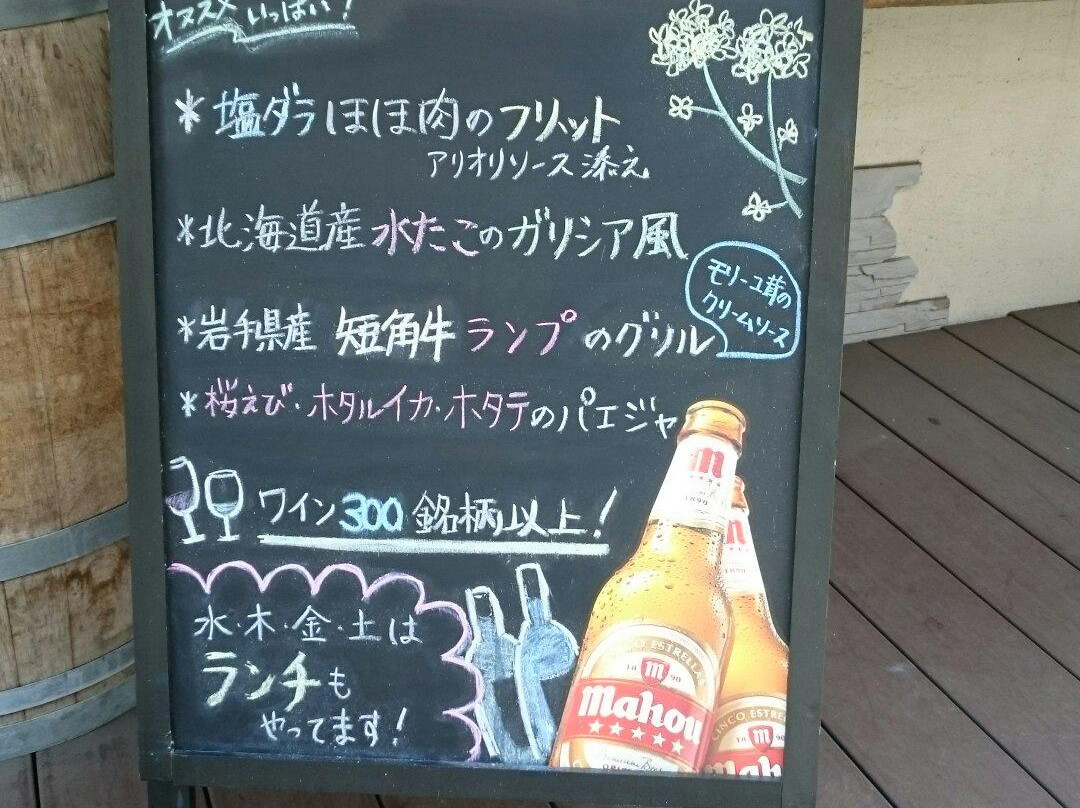 オススメ いっぱい!
*塩ダラほほ肉のフリット
アリオリソース添え
*北海道産水たこのガリシア風
*岩手県産 短角牛ランプのグリル
モリーユ茸の
クリームソース
*桜えび・ホタルイカ・ホタテのパエジャ
ワイン300銘柄以上!
水・木・金・土は
ランチも
やってます!
m
1890
CINCO ESTRELLAS
18 m 90
Mahou
m
CINCO ESTRE
m
Mah